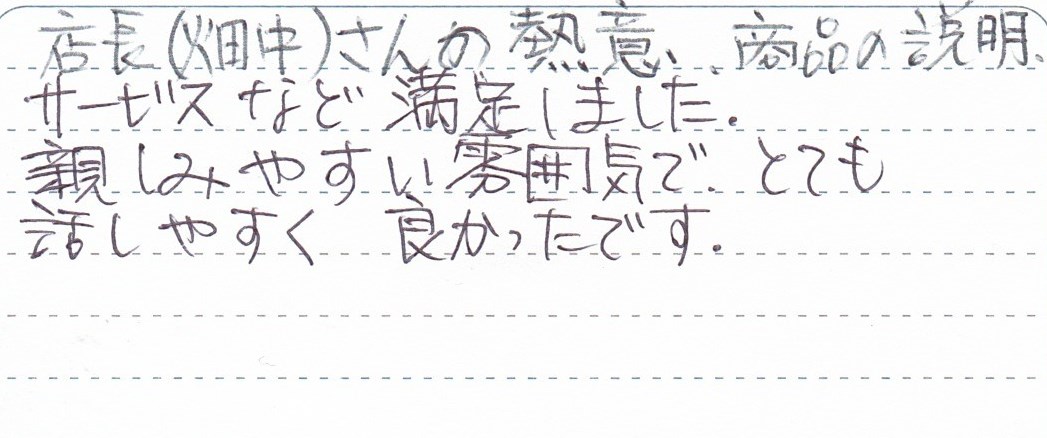 店長(畑中)さんの熱意、商品の説明、
サービスなど満足しました。
親しみやすい雰囲気で、とても
話しやすく 良かったです。